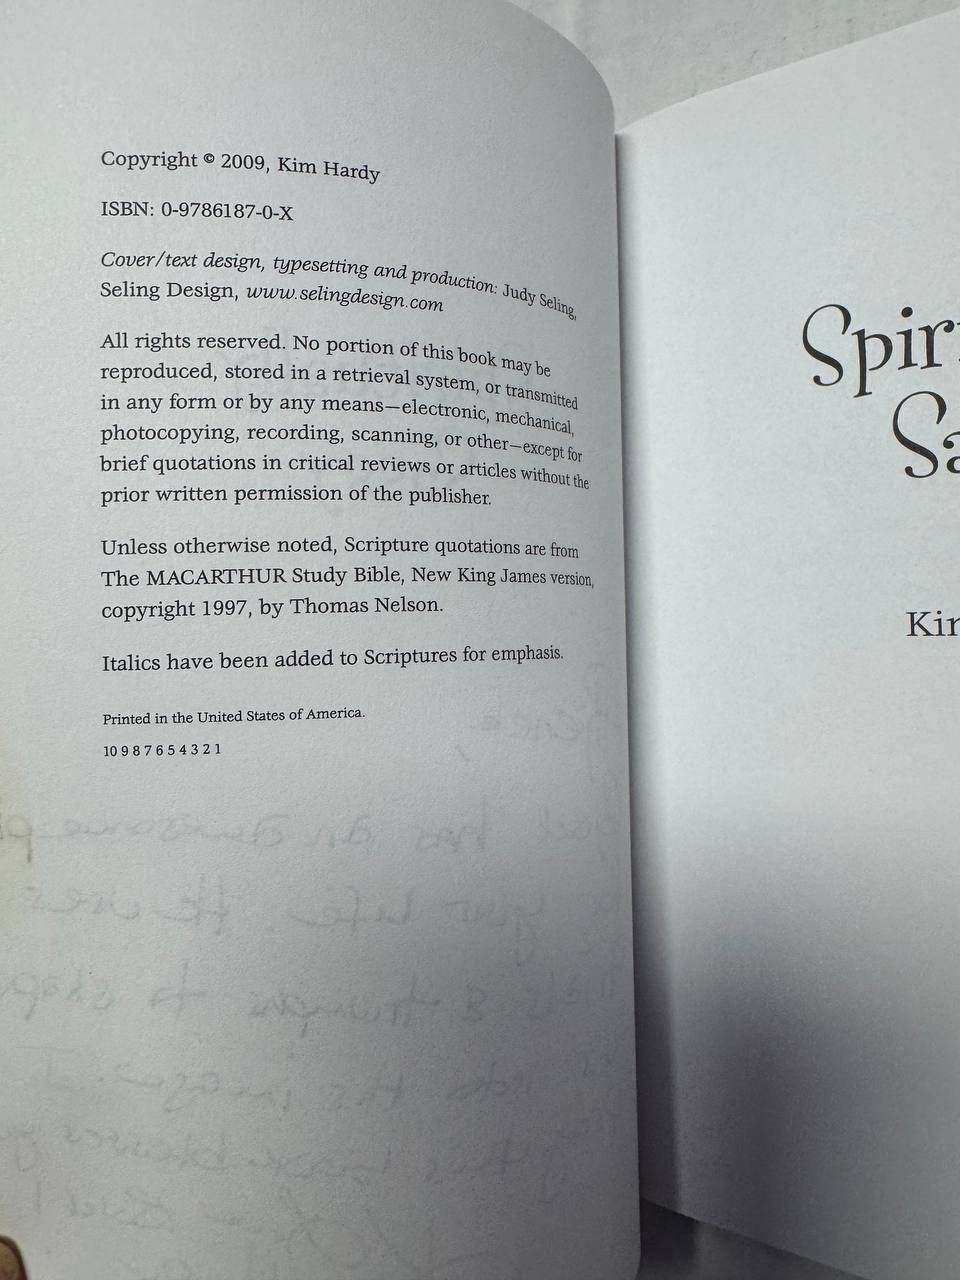 Copyright © 2009, Kim Hardy
ISBN: 0-9786187-0-X
Cover/text design, typesetting and production: Judy Seling,
Seling Design, www.selingdesign.com
All rights reserved. No portion of this book may be
reproduced, stored in a retrieval system, or transmitted
in any form or by any means—electronic, mechanical,
photocopying, recording, scanning, or other—except for
brief quotations in critical reviews or articles without the
prior written permission of the publisher.
Unless otherwise noted, Scripture quotations are from
The MACARTHUR Study Bible, New King James version,
copyright 1997, by Thomas Nelson.
Italics have been added to Scriptures for emphasis.
Printed in the United States of America.
10 9 8 7 6 5 4 3 2 1